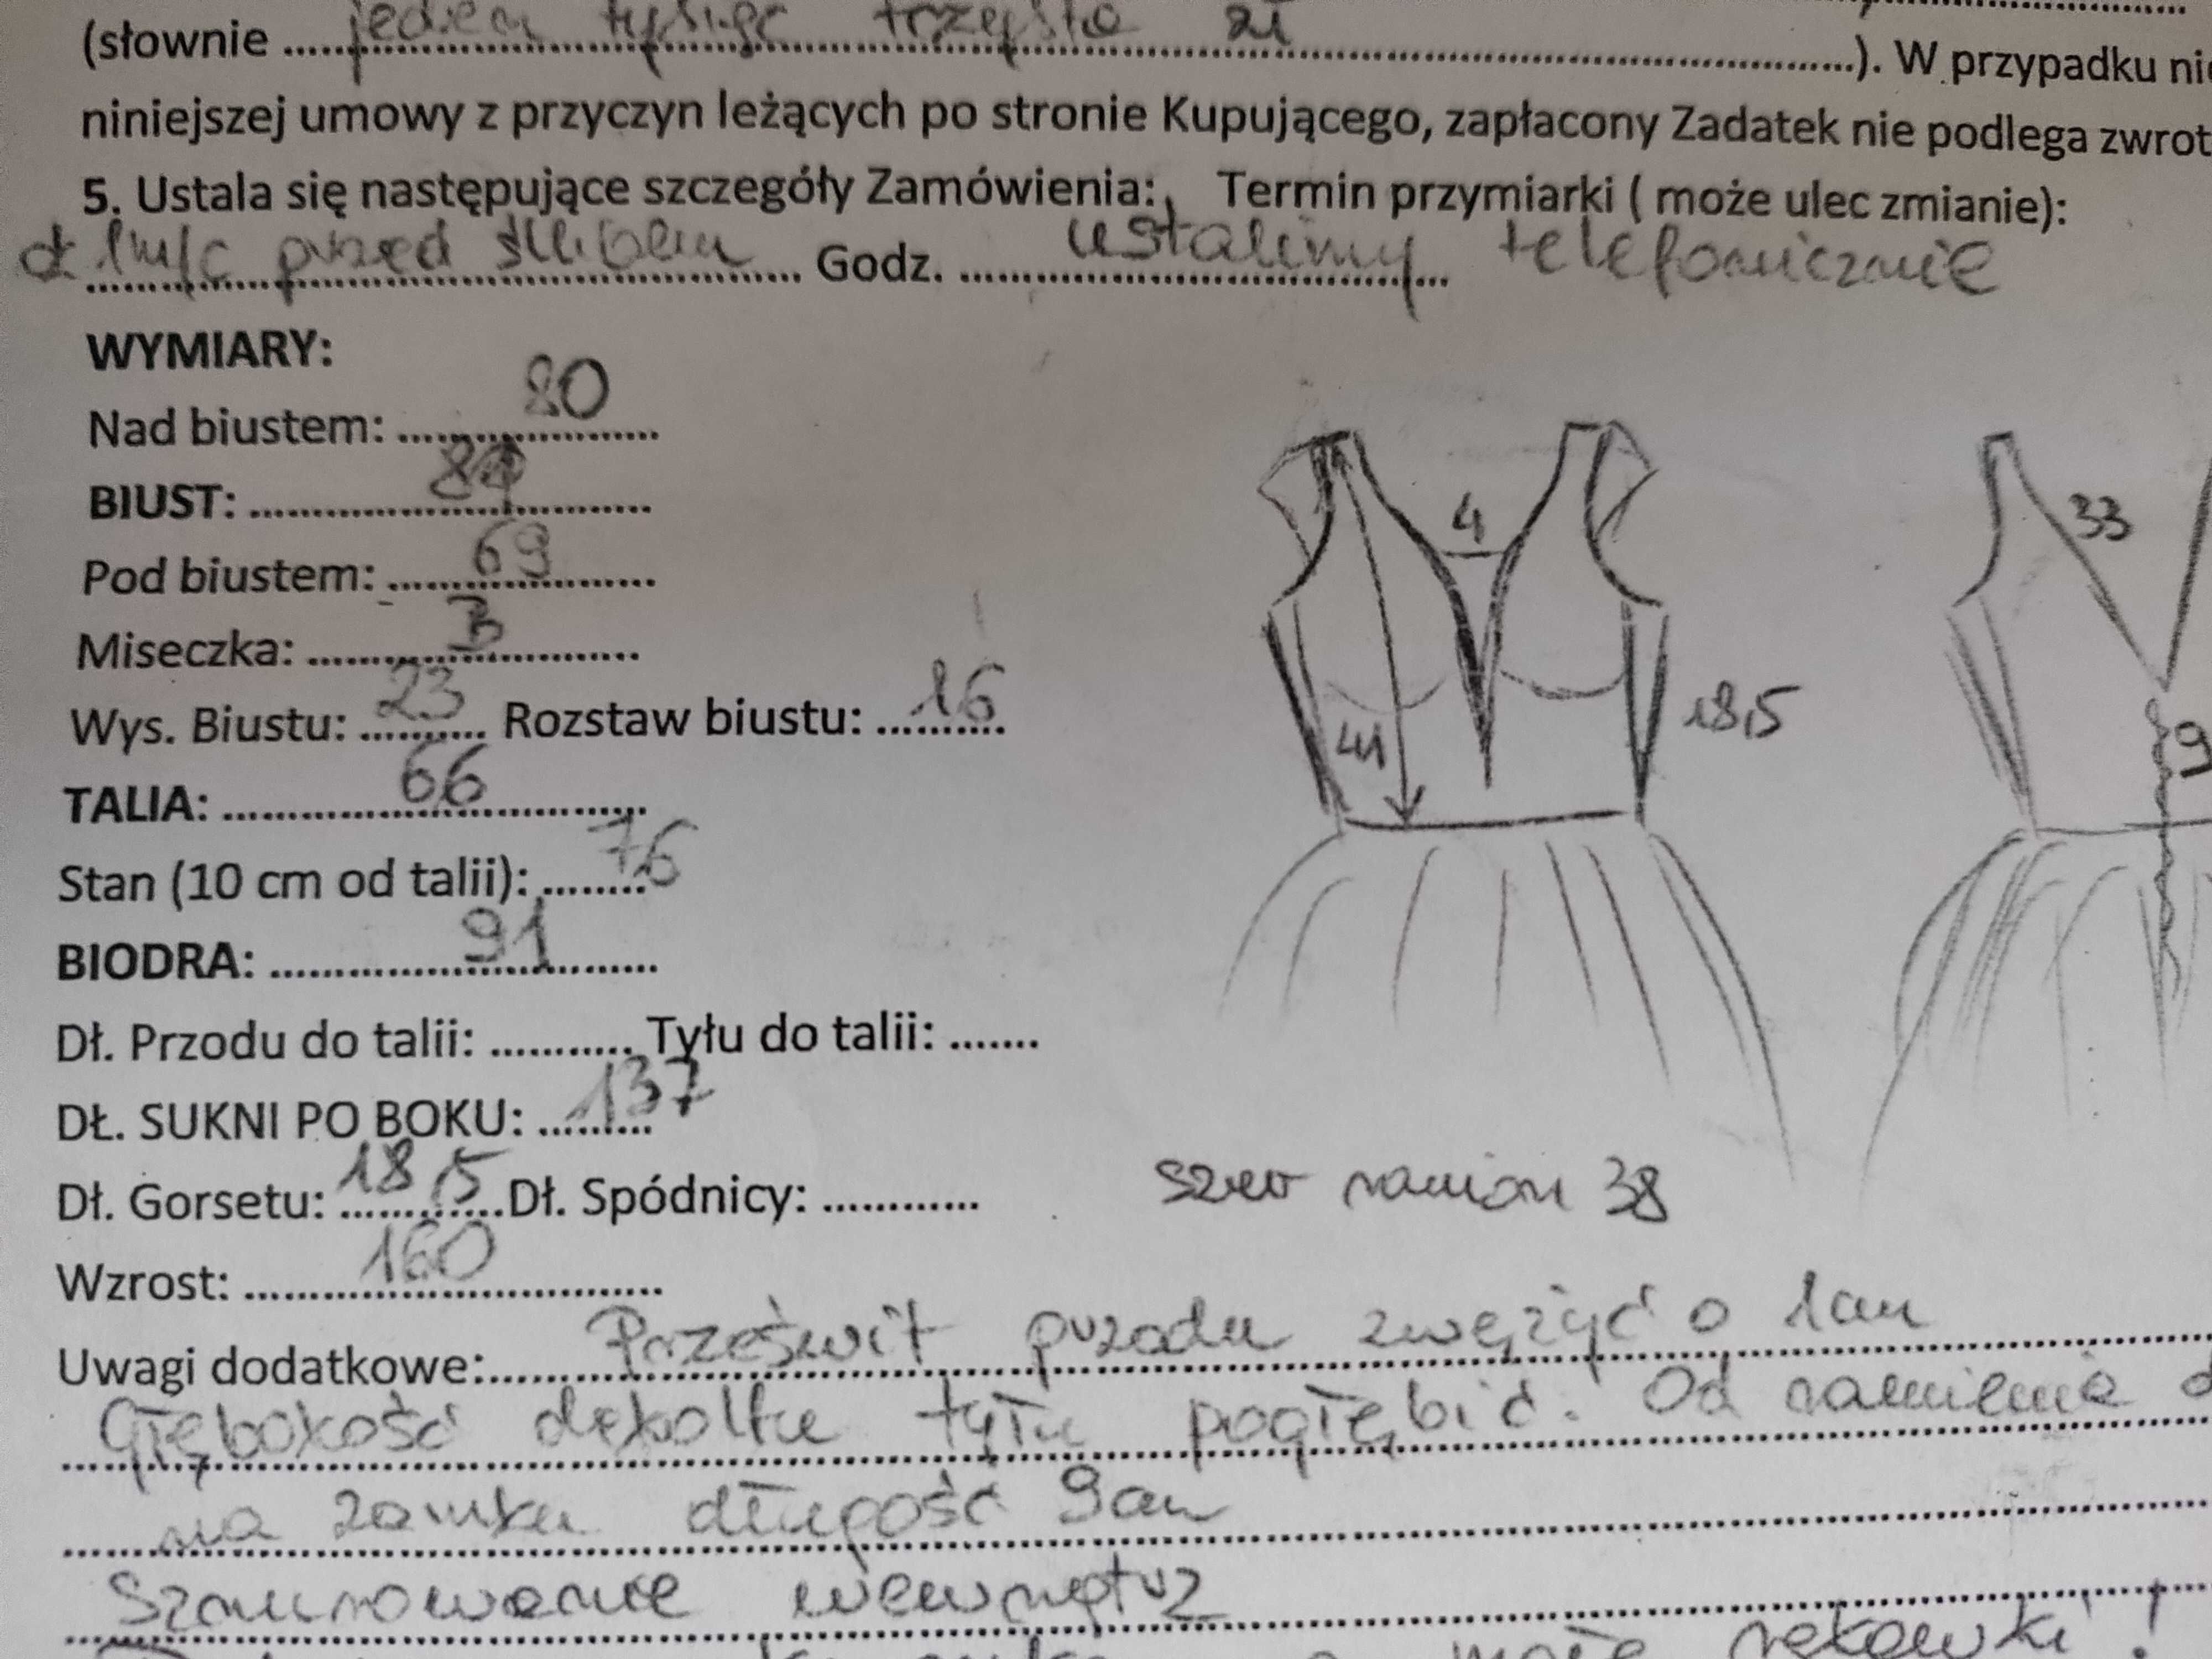 (słownie ..... jeden tysiąc trzysta zł .....). W przypadku ni
niniejszej umowy z przyczyn leżących po stronie Kupującego, zapłacony Zadatek nie podlega zwrot
5. Ustala się następujące szczegóły Zamówienia: Termin przymiarki ( może ulec zmianie):
ok 1 m/c przed ślubem ..... Godz. ..... ustalimy telefonicznie
WYMIARY:
Nad biustem: ..... 80
BIUST: .....
Pod biustem: ..... 69
Miseczka: ..... B
Wys. Biustu: ..... 23 Rozstaw biustu: ..... 16
TALIA: ..... 66
Stan (10 cm od talii): ..... 76
BIODRA: ..... 91
Dł. Przodu do talii: ........... Tyłu do talii: .......
DŁ. SUKNI PO BOKU: ..... 137
Dł. Gorsetu: ..... 18,5 Dł. Spódnicy: ............
Wzrost: ..... 160
4
41
18,5
33
9
szer ramion 38
Uwagi dodatkowe: ..... Prześwit przodu zwęzyć o 1cm
Głębokość dekoltu tyłu pogłębić. Od ramienia d
na zamku długość 9cm
Sznurowanie wewnątrz
małe rękawki !